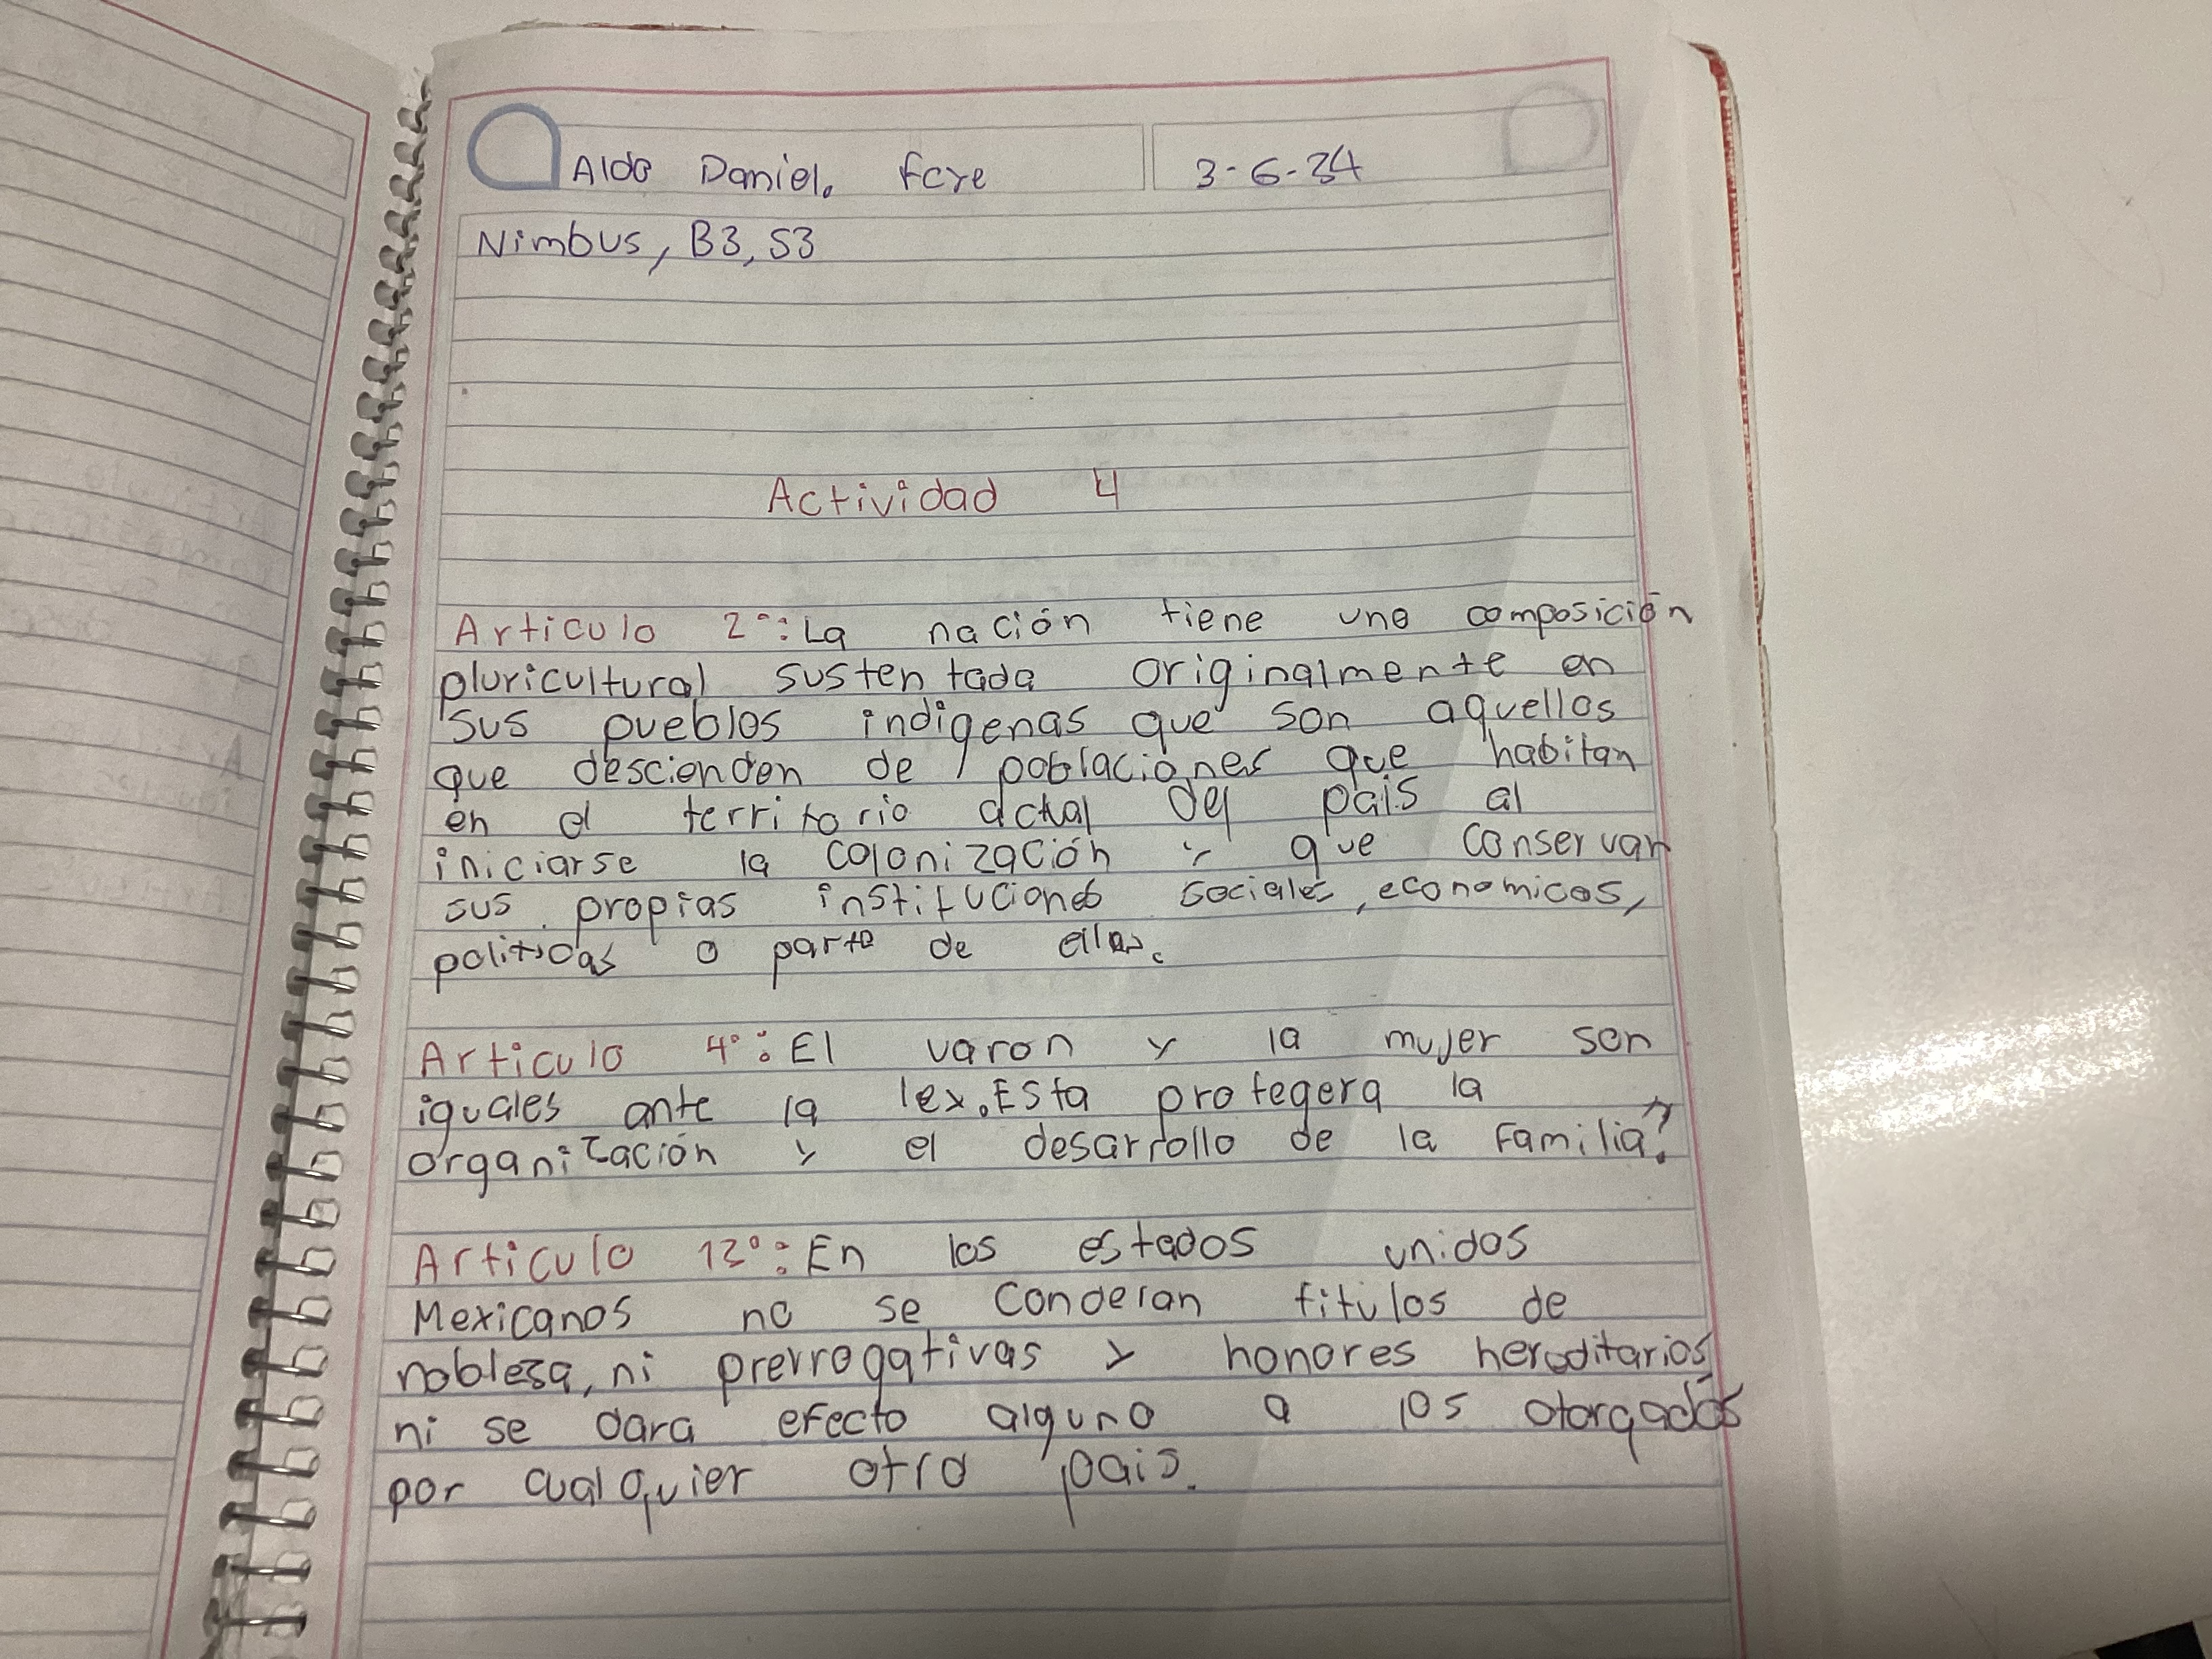 Aldo Daniel. fcye 3-6-24
Nimbus, B3, S3
Actividad 4
Articulo 2°: La nación tiene una composición
pluricultural sustentada originalmente en
sus pueblos indigenas que son aquellos
que descienden de poblaciones que habitan
en el territorio actual del pais al
iniciarse la colonización y que conservan
sus propias instituciones sociales, economicas,
politicas o parte de ellas.
Articulo 4°: El varon y la mujer son
iguales ante la ley. Esta protegera la
organización y el desarrollo de la familia.
Articulo 12°: En los estados unidos
Mexicanos no se conderan titulos de
nobleza, ni prerrogativas y honores hereditarios
ni se dara efecto alguno a los otorgados
por cualquier otro pais.